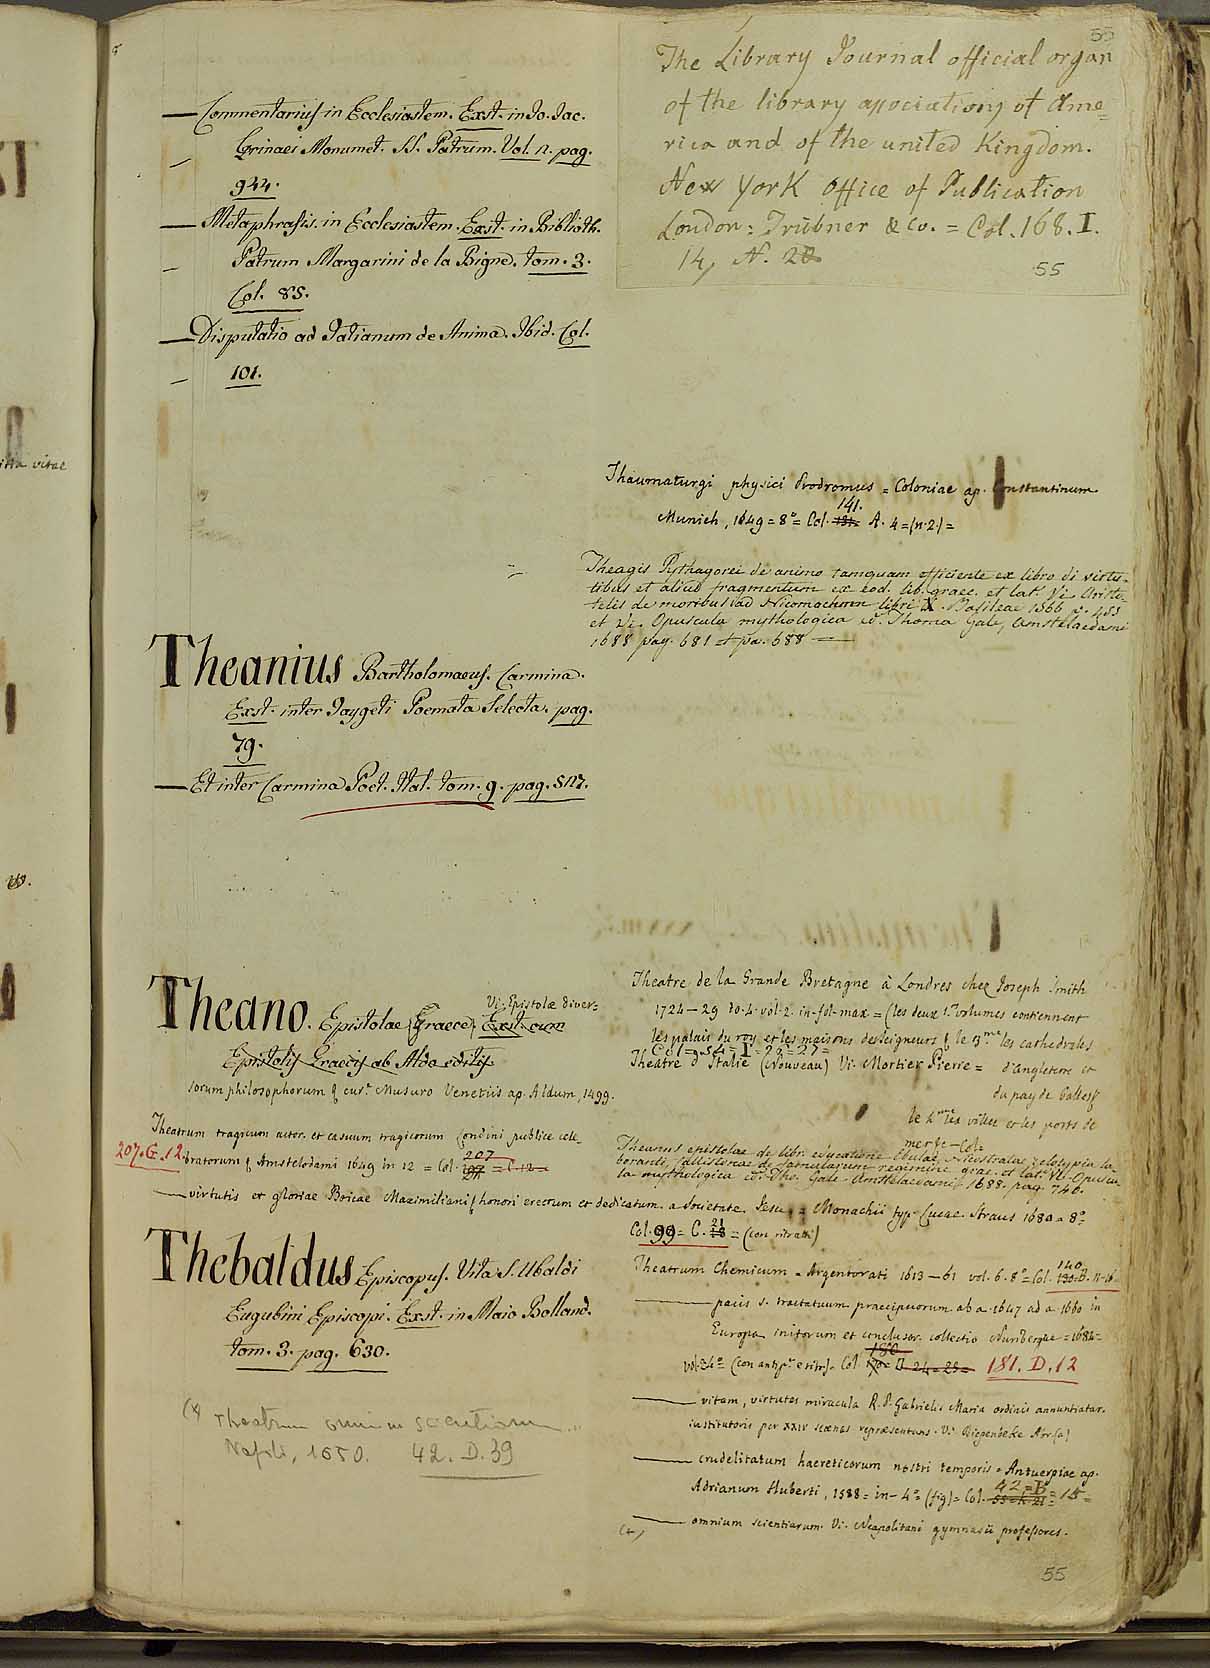 — Commentarius in Ecclesiastem. Exst. in Jo. Jac.
Grinaei Monumet. SS. Patrum. Vol. n. pag.
944.
— Metaphrasis. in Ecclesiastem. Exst. in Biblioth.
Patrum Margarini de la Bigne. tom. 3.
Col. 85.
— Disputatio ad Tatianum de Anima. Ibid. Col.
101.
Theanius Bartholomaeus. Carmina.
Exst. inter Taygeti Poemata Selecta. pag.
79.
— Et inter Carmina Poet. Ital. tom. 9. pag.
Vi. Epistolæ diver=
Theano. Epistolae Graece. Exst. cum
Epistolis Graecis ab Aldo editis
sorum philosophorum & cur.e Musuro Venetiis ap. Aldum, 1499.
Theatrum tragicum actor. et casuum tragicorum Londini publice cele-
207. G. 12. bratorum & Amstelodami 1649 in 12 = Col. 207 = C. 12
— virtutis et gloriae Boicae Maximiliani & honori erectum et dedicatum a Societate Jesu = Monachii typ. Lucae Straus 1680 = 8°=
Col. 99 = C. 21 = (con ritratti)
Thebaldus Episcopus. Vita S. Ubaldi
Eugubini Episcopi. Exst. in Maio Bolland.
tom. 3. pag. 630.
(+) Theatrum omnium scientiarum ...
Napoli, 1650. 42. D. 39
55
The Library Journal official organ
of the library associations of Ame=
rica and of the united Kingdom.
New York Office of Publication
London: Trübner & Co. = Col. 168. I.
14, N. 28
55
Thaumaturgi physici Prodromus = Coloniae ap. Constantinum
141.
Munich, 1649 = 8° = Col. A. 4 = (n. 2) =
Theagis Pythagorei de animo tamquam efficiente ex libro di virtu-
tibus et aliud fragmentum ex eod. lib. graec. et lat. Vi. Aristo-
telis de moribus ad Nicomachum libri X. Basileae 1566 p. 455
et Vi. Opuscula mythologica ed. Thoma Gale, Amstelaedami
1688 pag. 681 et pa. 688 —
Theatre de la Grande Bretagne à Londres chez Joseph Smith
1724 — 29 to. 4. vol. 2. in-fol. max = (les deux 1.rs volumes contiennent
les palais du roy, et les maisons desseigneurs & le 3.me les cathedrales
Theatre d'Italie (Nouveau) Vi. Mortier Pierre = d'angleterre et
du pay de Galles &
le 4.me les villes et les ports de
mer &c = Col=
Theanus epistolae de libr. educatione Ebulae, Nicostratae zelotypia la-
boranti, Callistonae de famularum regimine grae. et lat. Vi. Opuscu-
la mythologica ed. Tho. Gale. Amstelaedami 1688. pag. 740.
Theatrum Chemicum = Argentorati 1613 — 61 vol. 6. 8° = Col. 140 D. 11-16
— pacis s. tractatuum praecipuorum ab a. 1647 ad a. 1660 in
Europa initorum et conclusor. collectio Nurbergae = 1684=
181. D. 12
— vitam, virtutes miracula R. P. Gabrielis Maria ordinis annuntiatar.
institutoris per XXIV scænas repræsentans. Vi.
— crudelitatum haereticorum nostri temporis = Antuerpiae ap.
Adrianum Huberti, 1588 = in-4° = (fig) = Col. 42 = B = 15=
(+) — omnium scientiarum. Vi. Neapolitani gymnasii professores.
55